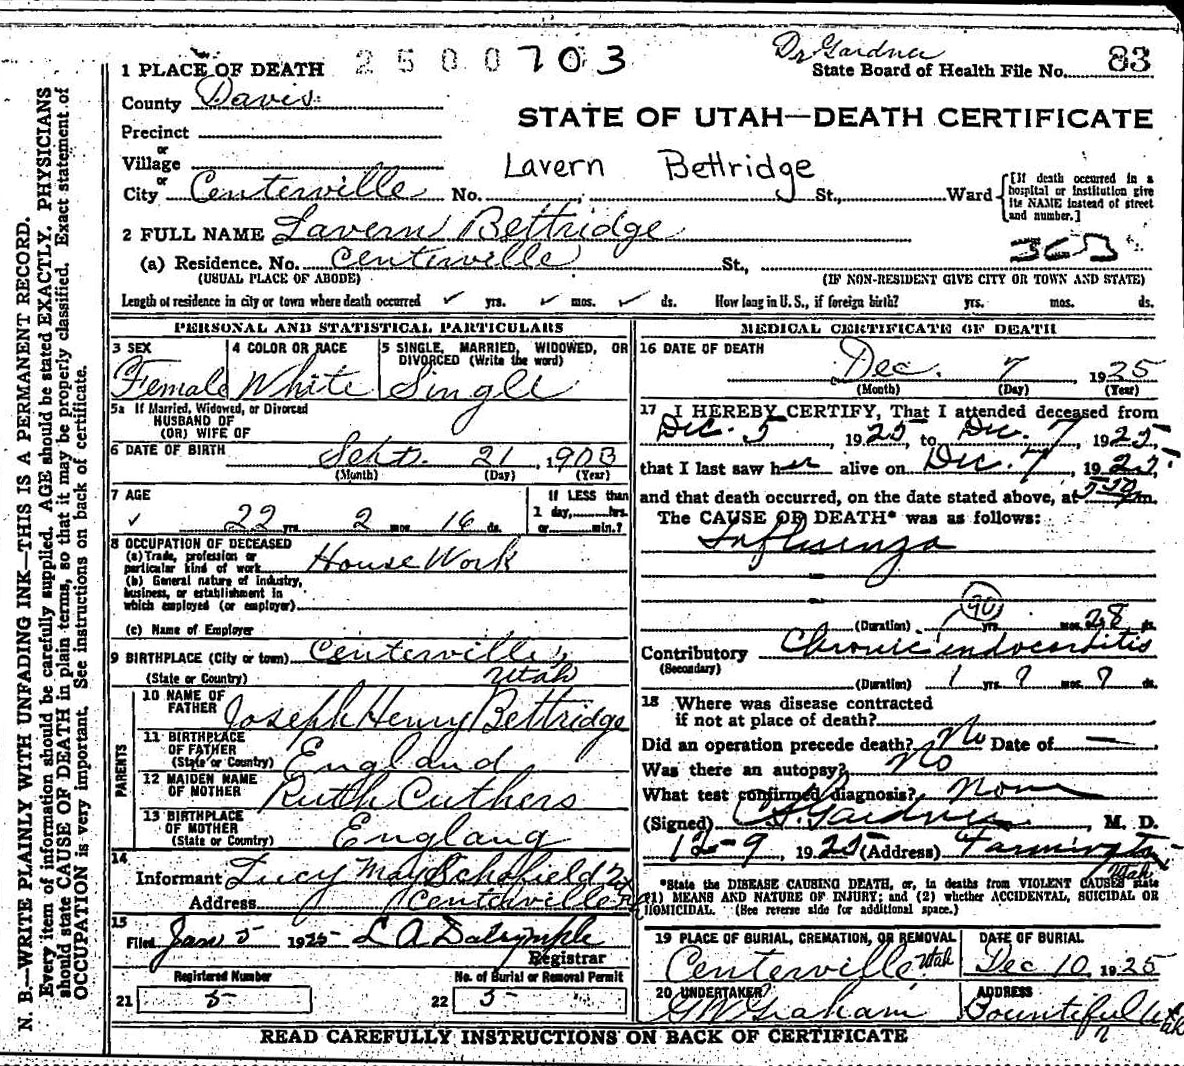 Dr Gardner
2500703
83
1 PLACE OF DEATH
State Board of Health File No.
County Davis
STATE OF UTAH—DEATH CERTIFICATE
Precinct
or
Village
Lavern Bettridge
or
City Centerville No. St., Ward
[If death occurred in a hospital or institution give its NAME instead of street and number.]
2 FULL NAME Lavern Bettridge
(a) Residence. No. Centerville St.,
(USUAL PLACE OF ABODE) (IF NON-RESIDENT GIVE CITY OR TOWN AND STATE)
Length of residence in city or town where death occurred ✓ yrs. ✓ mos. ✓ ds. How long in U. S., if foreign birth? yrs. mos. ds.
PERSONAL AND STATISTICAL PARTICULARS
3 SEX
Female
4 COLOR OR RACE
White
5 SINGLE, MARRIED, WIDOWED, OR
DIVORCED (Write the word)
Single
5a If Married, Widowed, or Divorced
HUSBAND OF
(OR) WIFE OF
6 DATE OF BIRTH Sept. 21, 1903
(Month) (Day) (Year)
7 AGE
✓ 22 yrs. 2 mos. 16 ds.
If LESS than
1 day, hrs.
or min.?
8 OCCUPATION OF DECEASED
(a) Trade, profession or
particular kind of work House Work
(b) General nature of industry,
business, or establishment in
which employed (or employer)
(c) Name of Employer
9 BIRTHPLACE (City or town) Centerville,
(State or Country) Utah
PARENTS
10 NAME OF
FATHER Joseph Henry Bettridge
11 BIRTHPLACE
OF FATHER
(State or Country) England
12 MAIDEN NAME
OF MOTHER Ruth Cuthers
13 BIRTHPLACE
OF MOTHER
(State or Country) England
14
Informant Lucy May Schofield
Address Centerville
15
Filed Jan 5 1925 L A Dalrymple
Registrar
Registered Number
No. of Burial or Removal Permit
21 5
22 5
MEDICAL CERTIFICATE OF DEATH
16 DATE OF DEATH
Dec. 7 1925
(Month) (Day) (Year)
17 I HEREBY CERTIFY, That I attended deceased from
Dec. 5, 1925, to Dec. 7, 1925
that I last saw her alive on Dec. 7, 1925,
and that death occurred, on the date stated above, at m.
The CAUSE OF DEATH* was as follows:
Influenza
90
(Duration) yrs. mos. 28 ds.
Contributory Chronic endocarditis
(Secondary)
(Duration) 1 yrs. ? mos. ? ds.
18 Where was disease contracted
if not at place of death?
Did an operation precede death? No Date of —
Was there an autopsy? No
What test confirmed diagnosis? None
(Signed) Gardner, M. D.
12-9, 1925 (Address) Farmington
Utah
*State the DISEASE CAUSING DEATH, or, in deaths from VIOLENT CAUSES state
(1) MEANS AND NATURE OF INJURY; and (2) whether ACCIDENTAL, SUICIDAL OR
HOMICIDAL. (See reverse side for additional space.)
19 PLACE OF BURIAL, CREMATION, OR REMOVAL
Centerville, Utah
DATE OF BURIAL
Dec 10, 1925
20 UNDERTAKER
G W Graham
ADDRESS
Bountiful Utah
READ CAREFULLY INSTRUCTIONS ON BACK OF CERTIFICATE
N. B.—WRITE PLAINLY WITH UNFADING INK—THIS IS A PERMANENT RECORD.
Every item of information should be carefully supplied. AGE should be stated EXACTLY. PHYSICIANS
should state CAUSE OF DEATH in plain terms, so that it may be properly classified. Exact statement of
OCCUPATION is very important. See instructions on back of certificate.